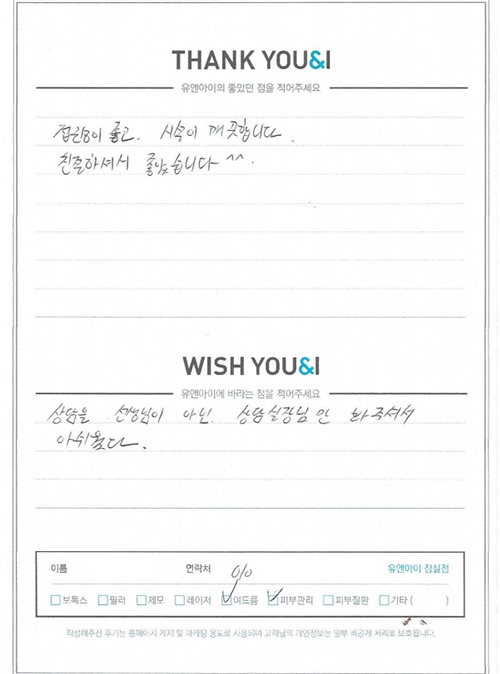 THANK YOU&I
유앤아이의 좋았던 점을 적어주세요
접근성이 좋고. 시술이 깨끗합니다.
친절하셔서 좋았습니다 ^^.
WISH YOU&I
유앤아이에 바라는 점을 적어주세요
상담을 선생님이 아닌. 상담실장님만 봐주셔서
아쉬웠다.
이름 연락처 010 유앤아이 잠실점
보톡스 필러 제모 레이저 여드름 피부관리 피부질환 기타 ( )
작성해주신 후기는 홈페이지 게재 및 마케팅 용도로 사용되며 고객님의 개인정보는 일부 비공개 처리로 보호됩니다.